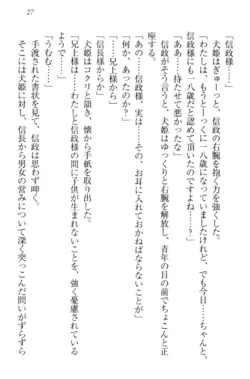 27
「信政様」
犬姫はぎゅーっと、信政の右腕を抱く力を強くした。
「わたしは、もうとーっくに一八歳になっていましたけれど、でも今日……ちゃんと、
信政様にも一八歳だと認めて頂いたのですよね……？」
「ああ……待たせて悪かったな」
信政がそう言うと、犬姫はゆっくりと右腕を解放し、青年の目の前でちょこんと正
座する。
「……信政様。……その……お耳に入れておかねばならないことが」
「何か、あったのか？」
「……兄上様が……」
「信長様から？」
犬姫はコクリと頷き、懐から手紙を取り出した。
「兄上様は……わたしと信政様の間に子供が生まれないことを、強く憂慮されている
ようで」
「うむむ……」
手渡された書状を見て、信政は思わず呻く。
そこには犬姫に対し、信長から男女の営みについて深く突っこんだ問いがずらずら